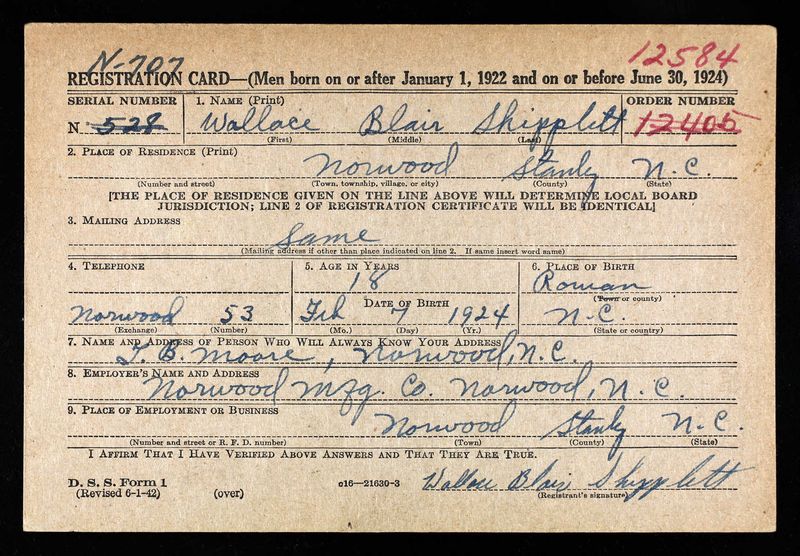 N-707 12584
REGISTRATION CARD—(Men born on or after January 1, 1922 and on or before June 30, 1924)
SERIAL NUMBER 1. NAME (Print) ORDER NUMBER
N 528 Wallace Blair Shipplett 12405
(First) (Middle) (Last)
2. PLACE OF RESIDENCE (Print)
Norwood Stanly N.C.
(Number and street) (Town, township, village, or city) (County) (State)
[THE PLACE OF RESIDENCE GIVEN ON THE LINE ABOVE WILL DETERMINE LOCAL BOARD
JURISDICTION; LINE 2 OF REGISTRATION CERTIFICATE WILL BE IDENTICAL]
3. MAILING ADDRESS
Same
(Mailing address if other than place indicated on line 2. If same insert word same)
4. TELEPHONE 5. AGE IN YEARS 6. PLACE OF BIRTH
18 Rowan
DATE OF BIRTH (Town or county)
Norwood 53 Feb 7 1924 N.C.
(Exchange) (Number) (Mo.) (Day) (Yr.) (State or country)
7. NAME AND ADDRESS OF PERSON WHO WILL ALWAYS KNOW YOUR ADDRESS
T. B. Moore, Norwood, N.C.
8. EMPLOYER'S NAME AND ADDRESS
Norwood Mfg. Co. Norwood, N.C.
9. PLACE OF EMPLOYMENT OR BUSINESS
Norwood Stanly N.C.
(Number and street or R. F. D. number) (Town) (County) (State)
I AFFIRM THAT I HAVE VERIFIED ABOVE ANSWERS AND THAT THEY ARE TRUE.
D. S. S. Form 1 Wallace Blair Shipplett
(Revised 6-1-42) (over) c16—21630-3 (Registrant's signature)